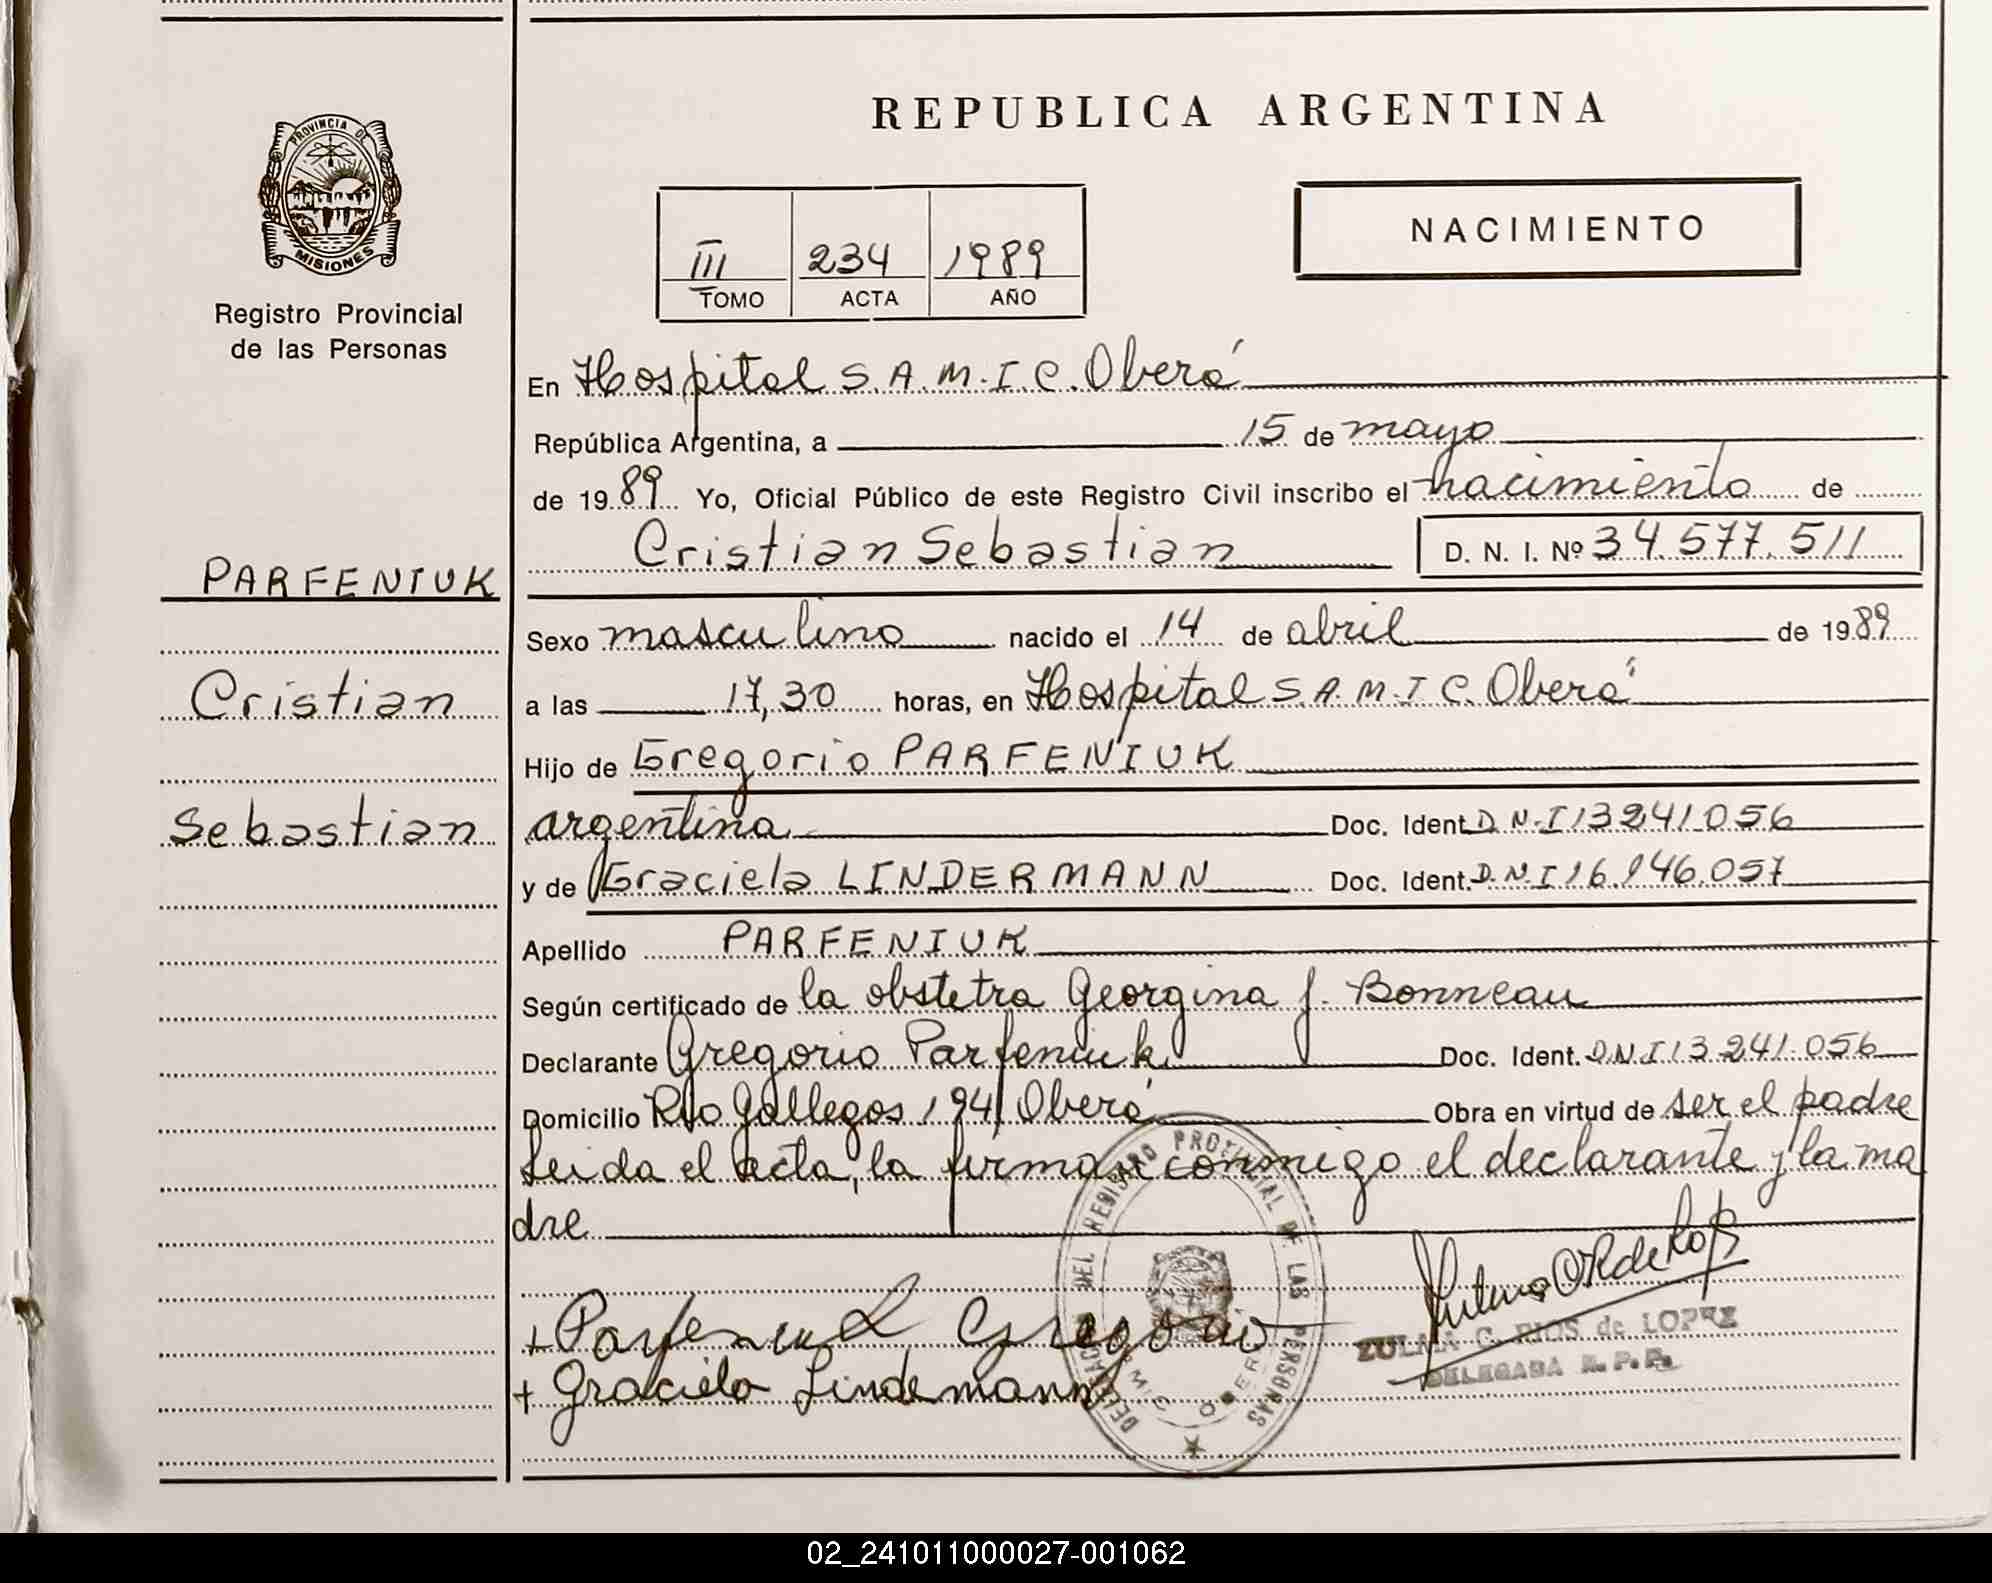 REPUBLICA ARGENTINA
PROVINCIA DE
MISIONES
Registro Provincial
de las Personas
III 234 1989
TOMO ACTA AÑO
NACIMIENTO
En Hospital S.A.M.I.C. Oberá
República Argentina, a 15 de mayo
de 1989 Yo, Oficial Público de este Registro Civil inscribo el nacimiento de
Cristian Sebastian D. N. I. Nº 34.577.511
PARFENIUK
Sexo masculino nacido el 14 de abril de 1989
Cristian
a las 17,30 horas, en Hospital S.A.M.I.C. Oberá
Hijo de Gregorio PARFENIUK
Sebastian
argentina Doc. Ident. D.N.I 13241.056
y de Graciela LINDERMANN Doc. Ident. D.N.I 16.946.057
Apellido PARFENIUK
Según certificado de la obstetra Georgina J. Bonneau
Declarante Gregorio Parfeniuk Doc. Ident. D.N.I 13.241.056
Domicilio Rio Gallegos 194 Oberá Obra en virtud de ser el padre
Leida el acta, la firman conmigo el declarante y la ma
dre
+ Parfeniuk Gregorio
+ Graciela Lindemann
DELEGACION DEL REGISTRO PROVINCIAL DE LAS PERSONAS
OBERA
ZULMA C. RIOS de LOPEZ
DELEGADA R. P. P.
02_241011000027-001062